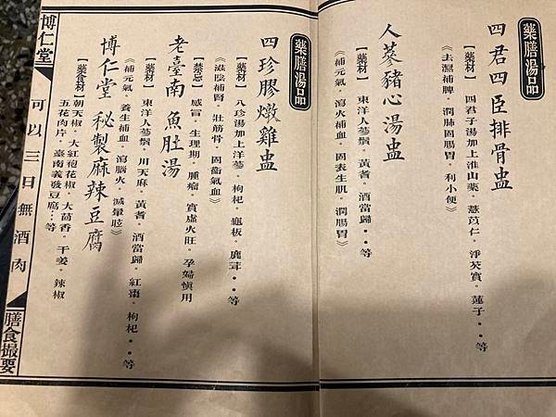 藥膳湯品
四君四臣排骨盅
【藥材】四君子湯加上淮山藥．薏苡仁．淨芡實．蓮子．．等
《去濕補脾．潤肺固腸胃．利小便》
人蔘豬心湯盅
【藥材】東洋人蔘鬚．黃耆．酒當歸．．等
《補元氣．瀉火補血．固表生肌．潤腸胃》
藥膳湯品
四珍膠燉雞盅
【藥材】八珍湯加上洋蔘．枸杞．龜板．鹿茸．．等
《滋陰補腎．壯筋骨．固衛氣血》
【禁忌】感冒．生理期．腫瘤．實虛火旺．孕婦慎用
老臺南 魚肚湯
【藥材】東洋人蔘鬚．川天麻．黃耆．酒當歸．紅棗．枸杞．．等
《補元氣．養生補血．瀉腦火．減暈眩》
博仁堂 秘製麻辣豆腐
【藥食材】朝天椒．大紅袍花椒．大茴香．干姜．辣椒
五花肉片．臺南義發豆腐…等
博仁堂
可以三日無酒肉
膳食撮要